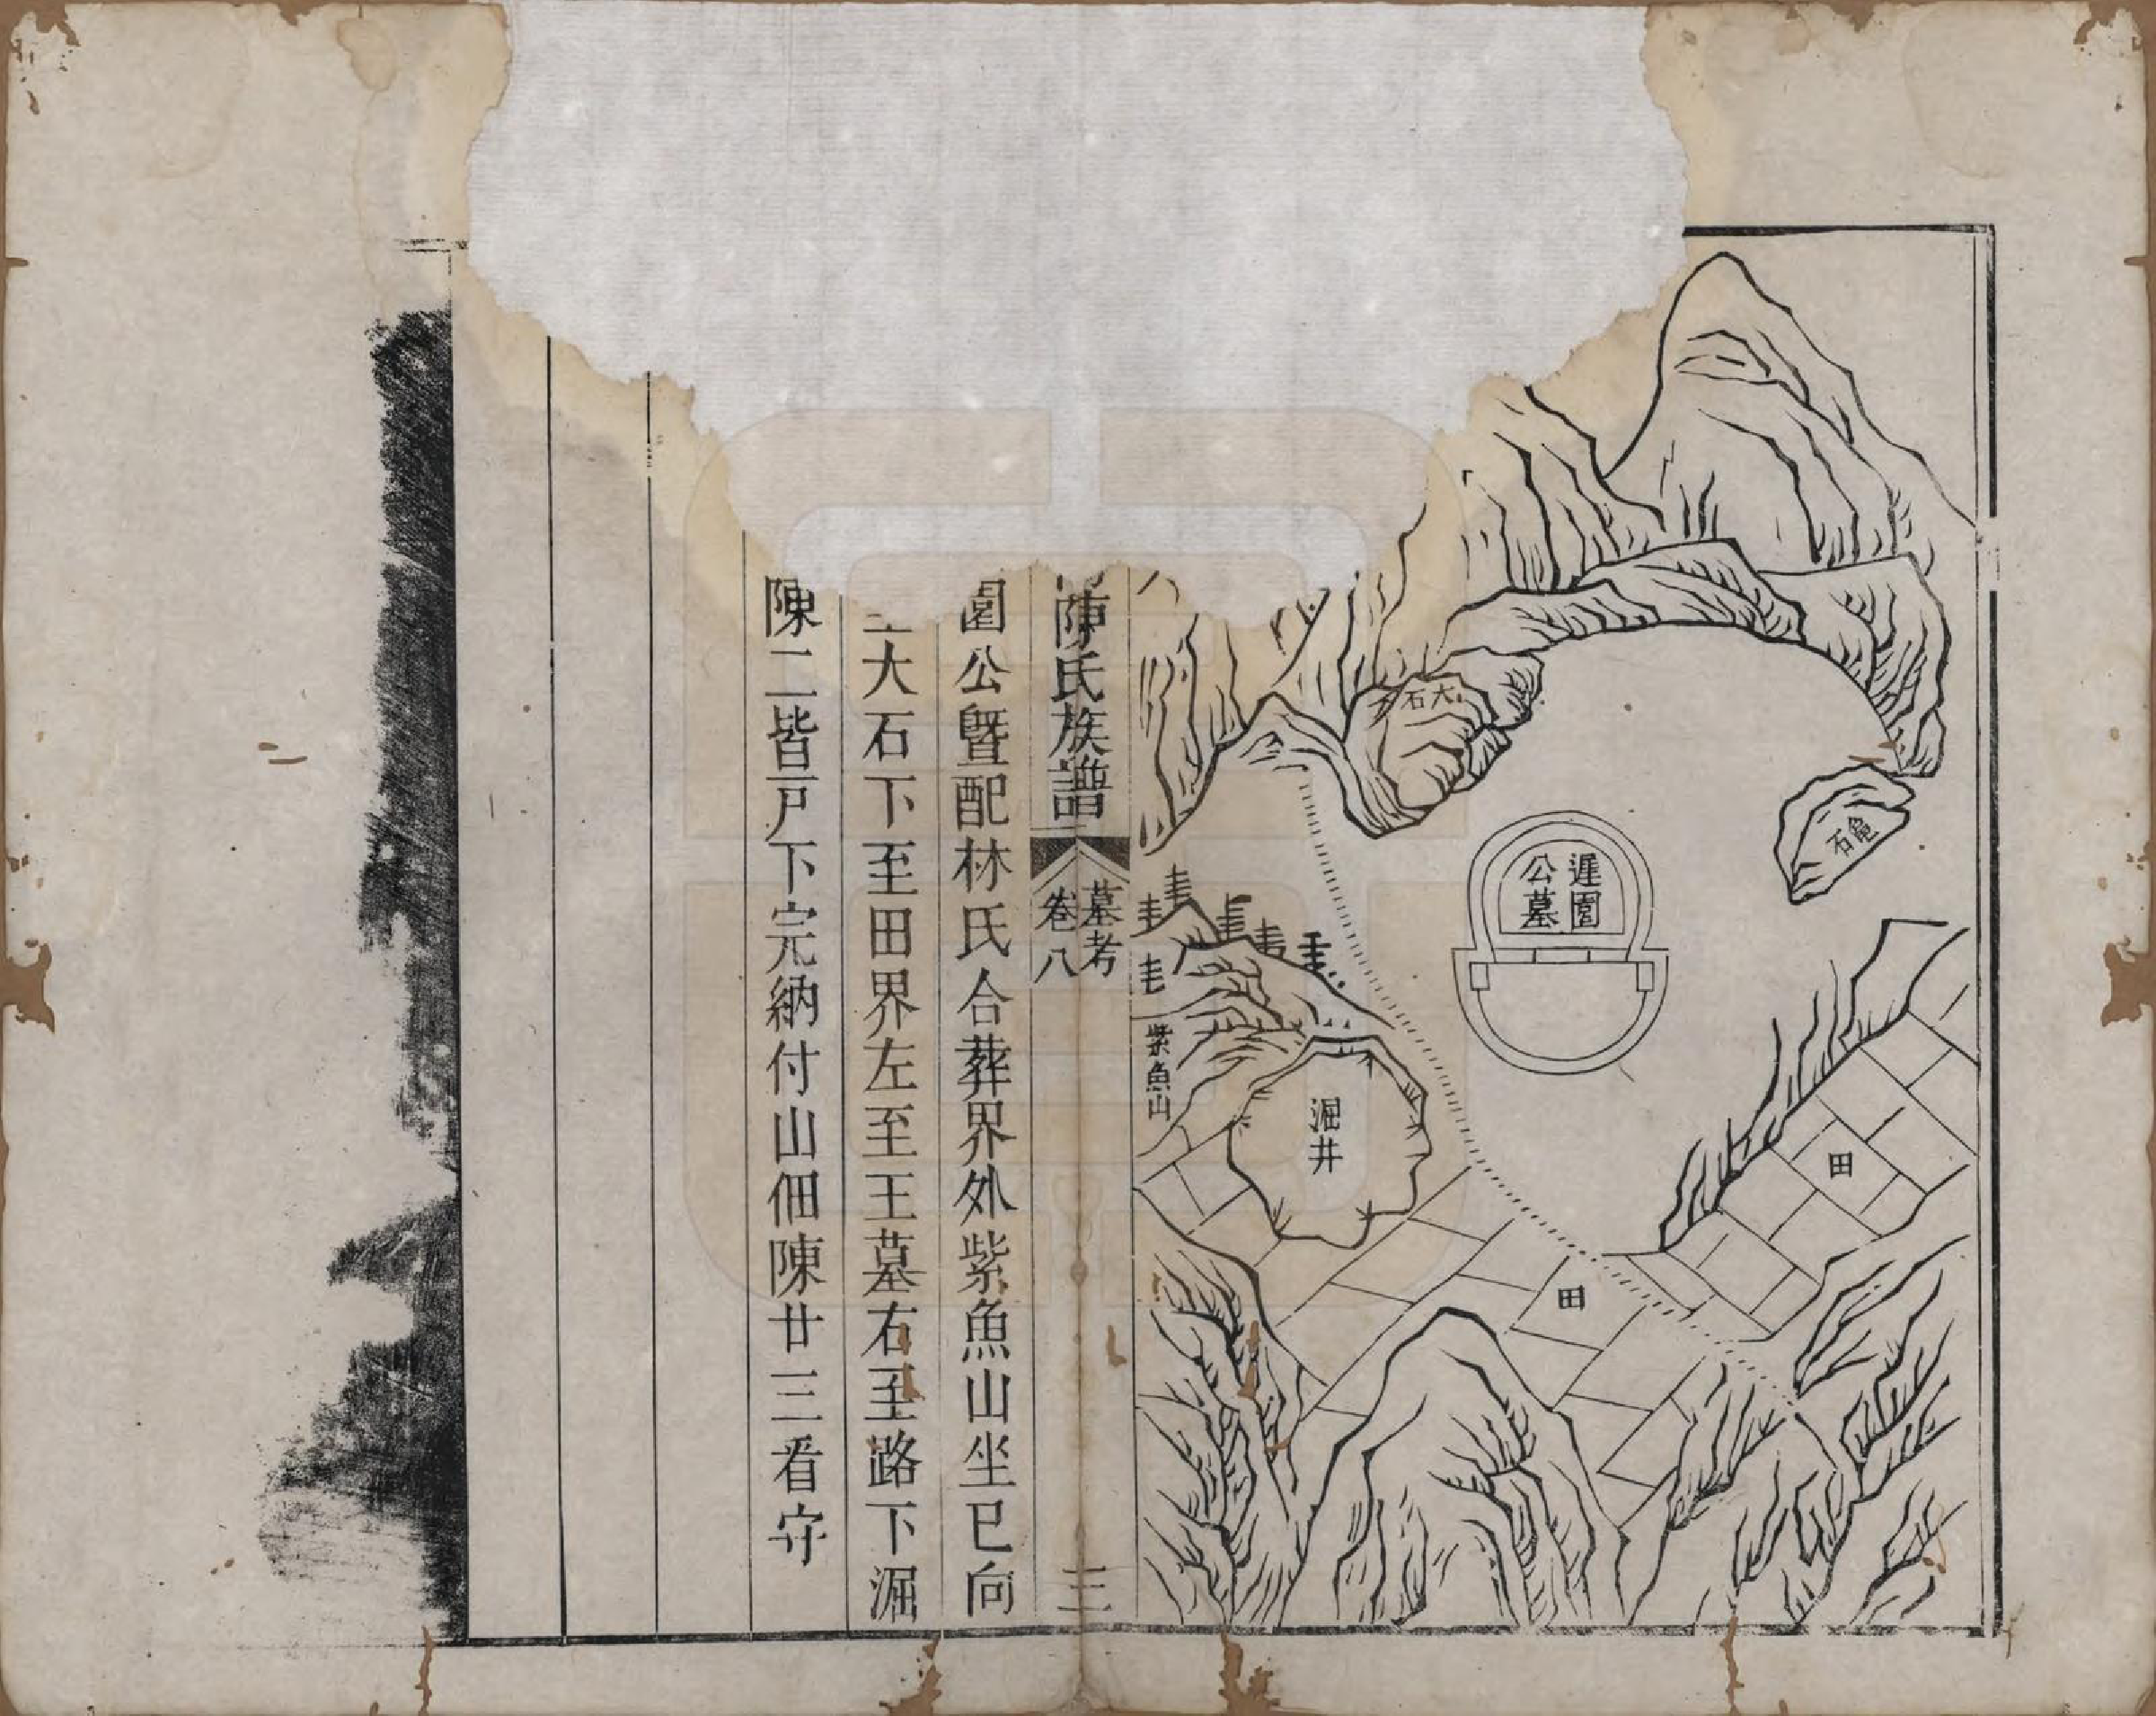 大石
龜石
遲園
公墓
田
田
湿井
紫魚山
陳氏族譜
墓考
卷八
三
園公暨配林氏合葬界外紫魚山坐巳向
大石下至田界左至王墓右至路下湿
陳二皆戸下完納付山佃陳廿三看守